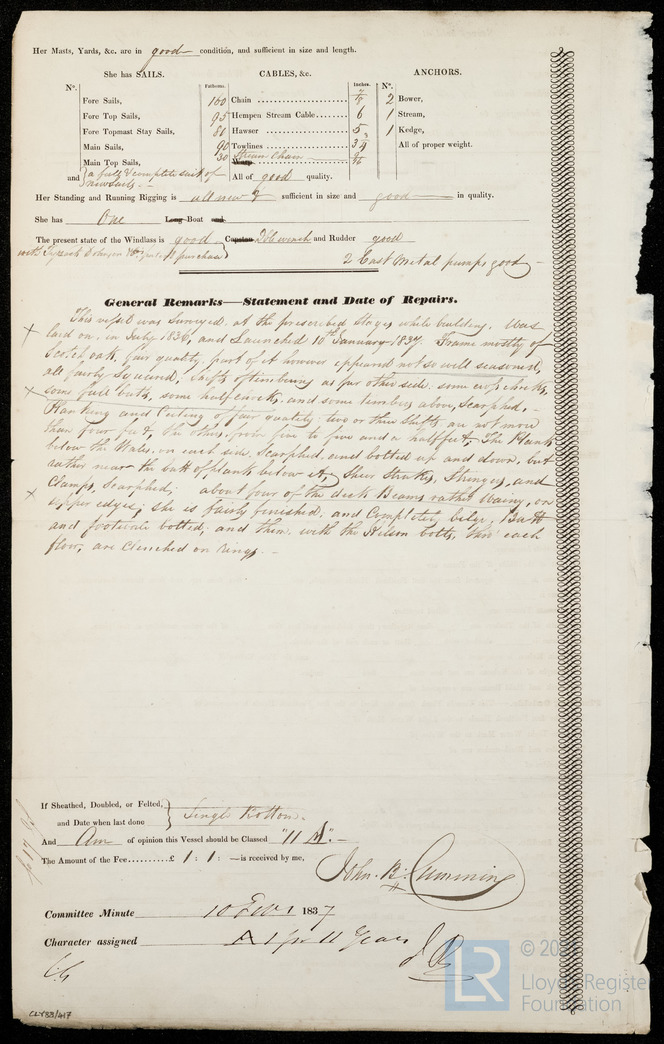 Her Masts, Yards, &c. are in good condition, and sufficient in size and length.
She has SAILS. CABLES, &c. ANCHORS.
No. Fathoms. Inches. No.
Fore Sails, 100 Chain 7/8 2 Bower,
Fore Top Sails, 95 Hempen Stream Cable 6 1 Stream,
Fore Topmast Stay Sails, 80 Hawser 5 1 Kedge,
Main Sails, 90 Towlines 3 All of proper weight.
Main Top Sails, 30 Stream Chain Warp
and a full & complete suit of All of good quality.
new sails
Her Standing and Running Rigging is all new & sufficient in size and good in quality.
She has One Long Boat and
The present state of the Windlass is good Capstan and Rudder good
with purchase 2 Cast Metal pumps good
General Remarks—Statement and Date of Repairs.
This vessel was Surveyed at the prescribed Stages while building. Was
laid on, in July 1836, and Launched 10th January 1837. Frame mostly of
Scotch oak, fair quality, part of it however appeared not so well seasoned,
all fairly Squared, Shifts of timbering as per other side, some crop chocks,
some full buts, some half chocks, and some timbers above, Scarphed,
Planking and Ceiling of fair quality, two or three Shifts are not more
than four feet, the others from five to five and a half feet, The Plank
below the Wales, on each side, Scarphed, and bolted up and down, but
rather near the butt of plank below it, Sheer Strakes, Stringers, and
Clamps, Scarphed; about four of the deck Beams rather Wainy, on
upper edges; She is fairly finished, and Completed, bilge, Butt
and footwale bolted, and them, with the Kilson bolts, thro' each
floor, are Clenched on rings.
If Sheathed, Doubled, or Felted,
and Date when last done Single Bottom.
And Am of opinion this Vessel should be Classed "11 A1".
The Amount of the Fee £ 1 : 1 : — is received by me,
John B. Cumming
Committee Minute 10 Feby 1837
Character assigned A1 for 11 Years
CLY33/417
LR
©
Lloyd's Register
Foundation